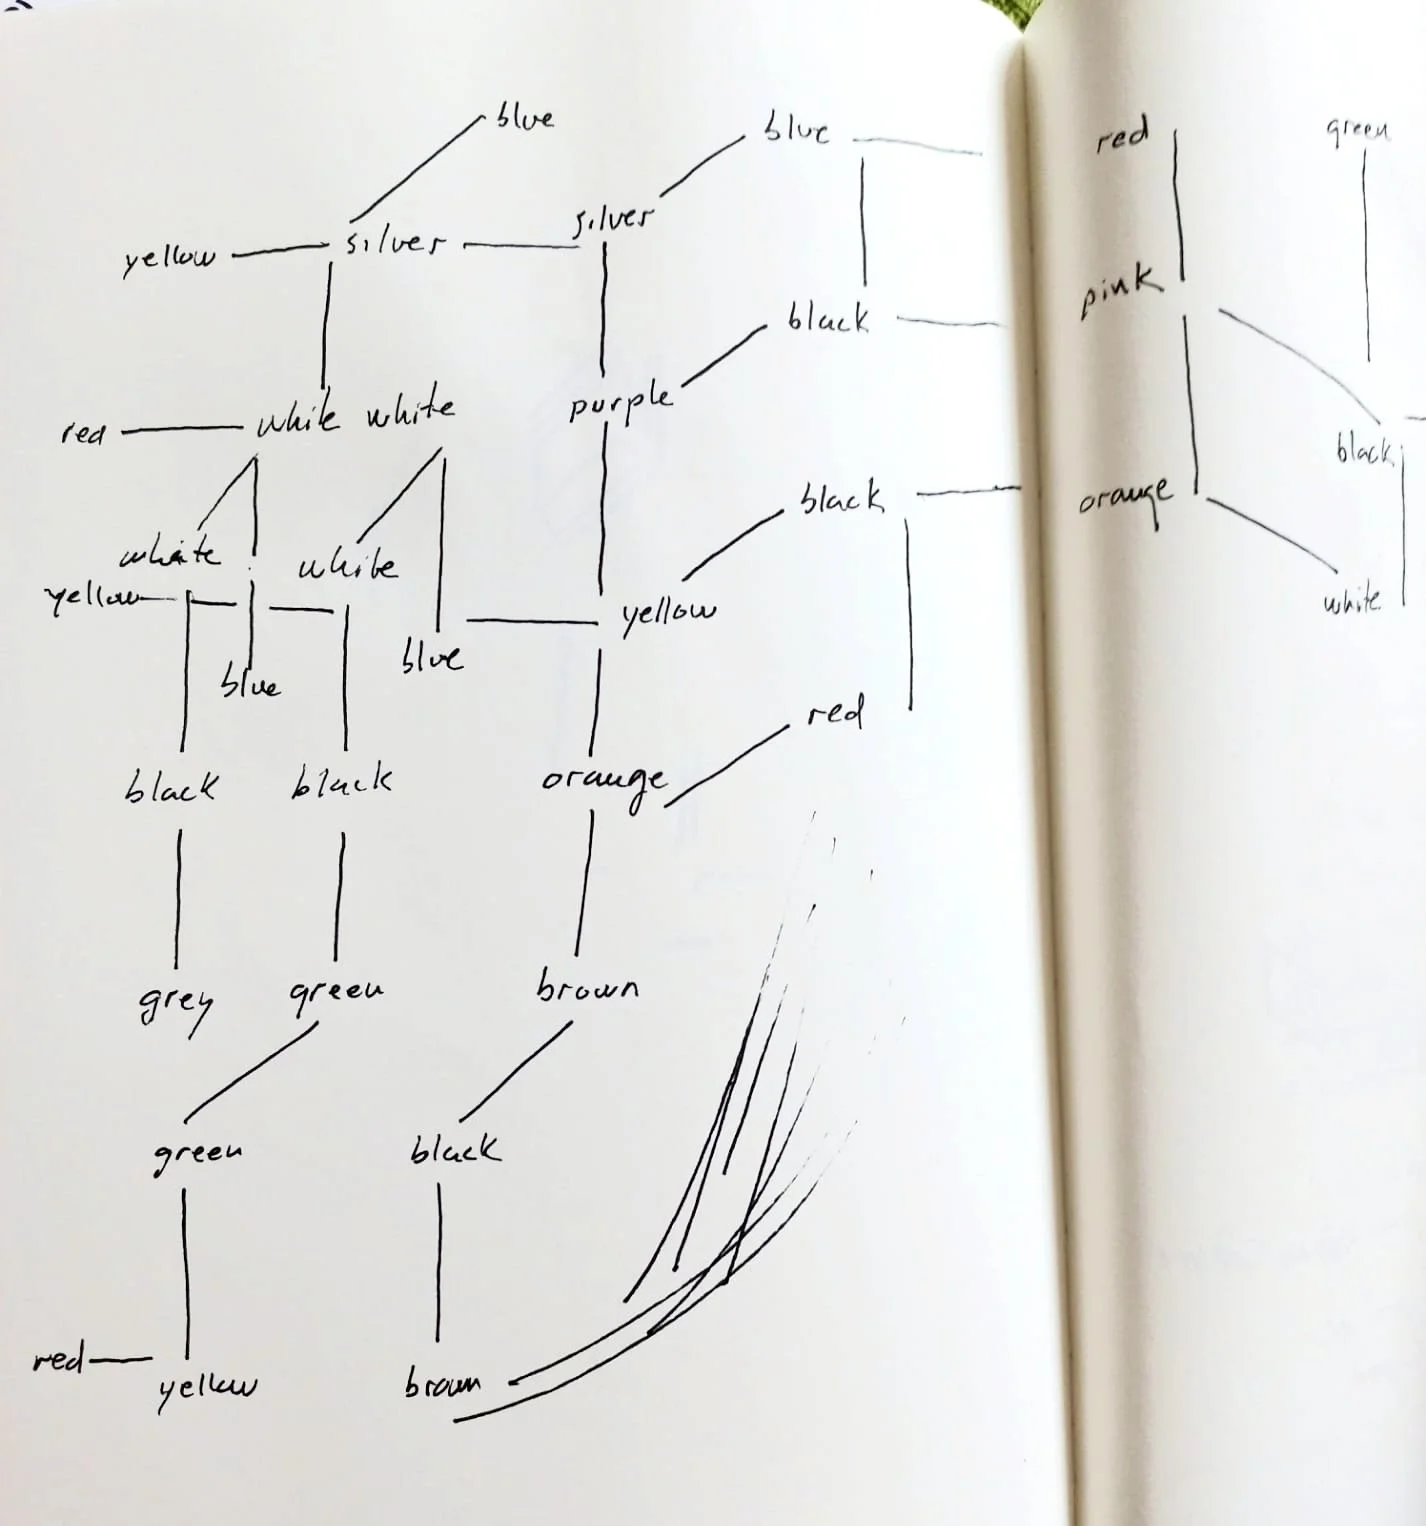 blue
blue
yellow silver silver
black
red while white purple
black
white white
yellow yellow
blue blue
red
black black orange
grey green brown
green black
red yellow brown
red green
pink
black
orange
white